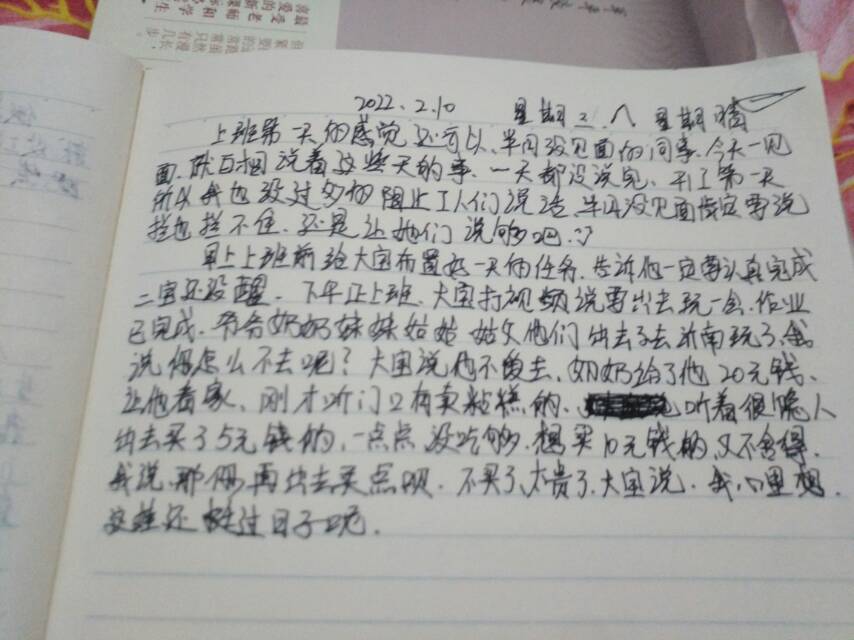 2022.2.10 星期三.八 星期 晴
上班第一天的感觉还可以、半月没见面的同事.今天一见
面.就互相说着这些天的事.一天都没说完、开工第一天
所以我也没过多的阻止工人们说话、半月没见面肯定要说
拦也拦不住.还是让她们说够吧.:)
早上上班前给大宝布置好一天的任务.告诉他一定要认真完成
二宝还没醒.下午正上班.大宝打视频说要出去玩一会.作业
已完成.爷爷奶奶妹妹姑姑姑父他们出去了去济南玩了.我
说你怎么不去呢?大宝说他不想去.奶奶给了他20元钱、
让他看家、刚才听门口有卖粘糕的、听着很馋人
出去买了5元钱的,一点点没吃够.想买10元钱的,又不舍得.
我说.那你再出去买点呗.不买了、太贵了.大宝说.我心里想.
这娃还挺过日子呢.